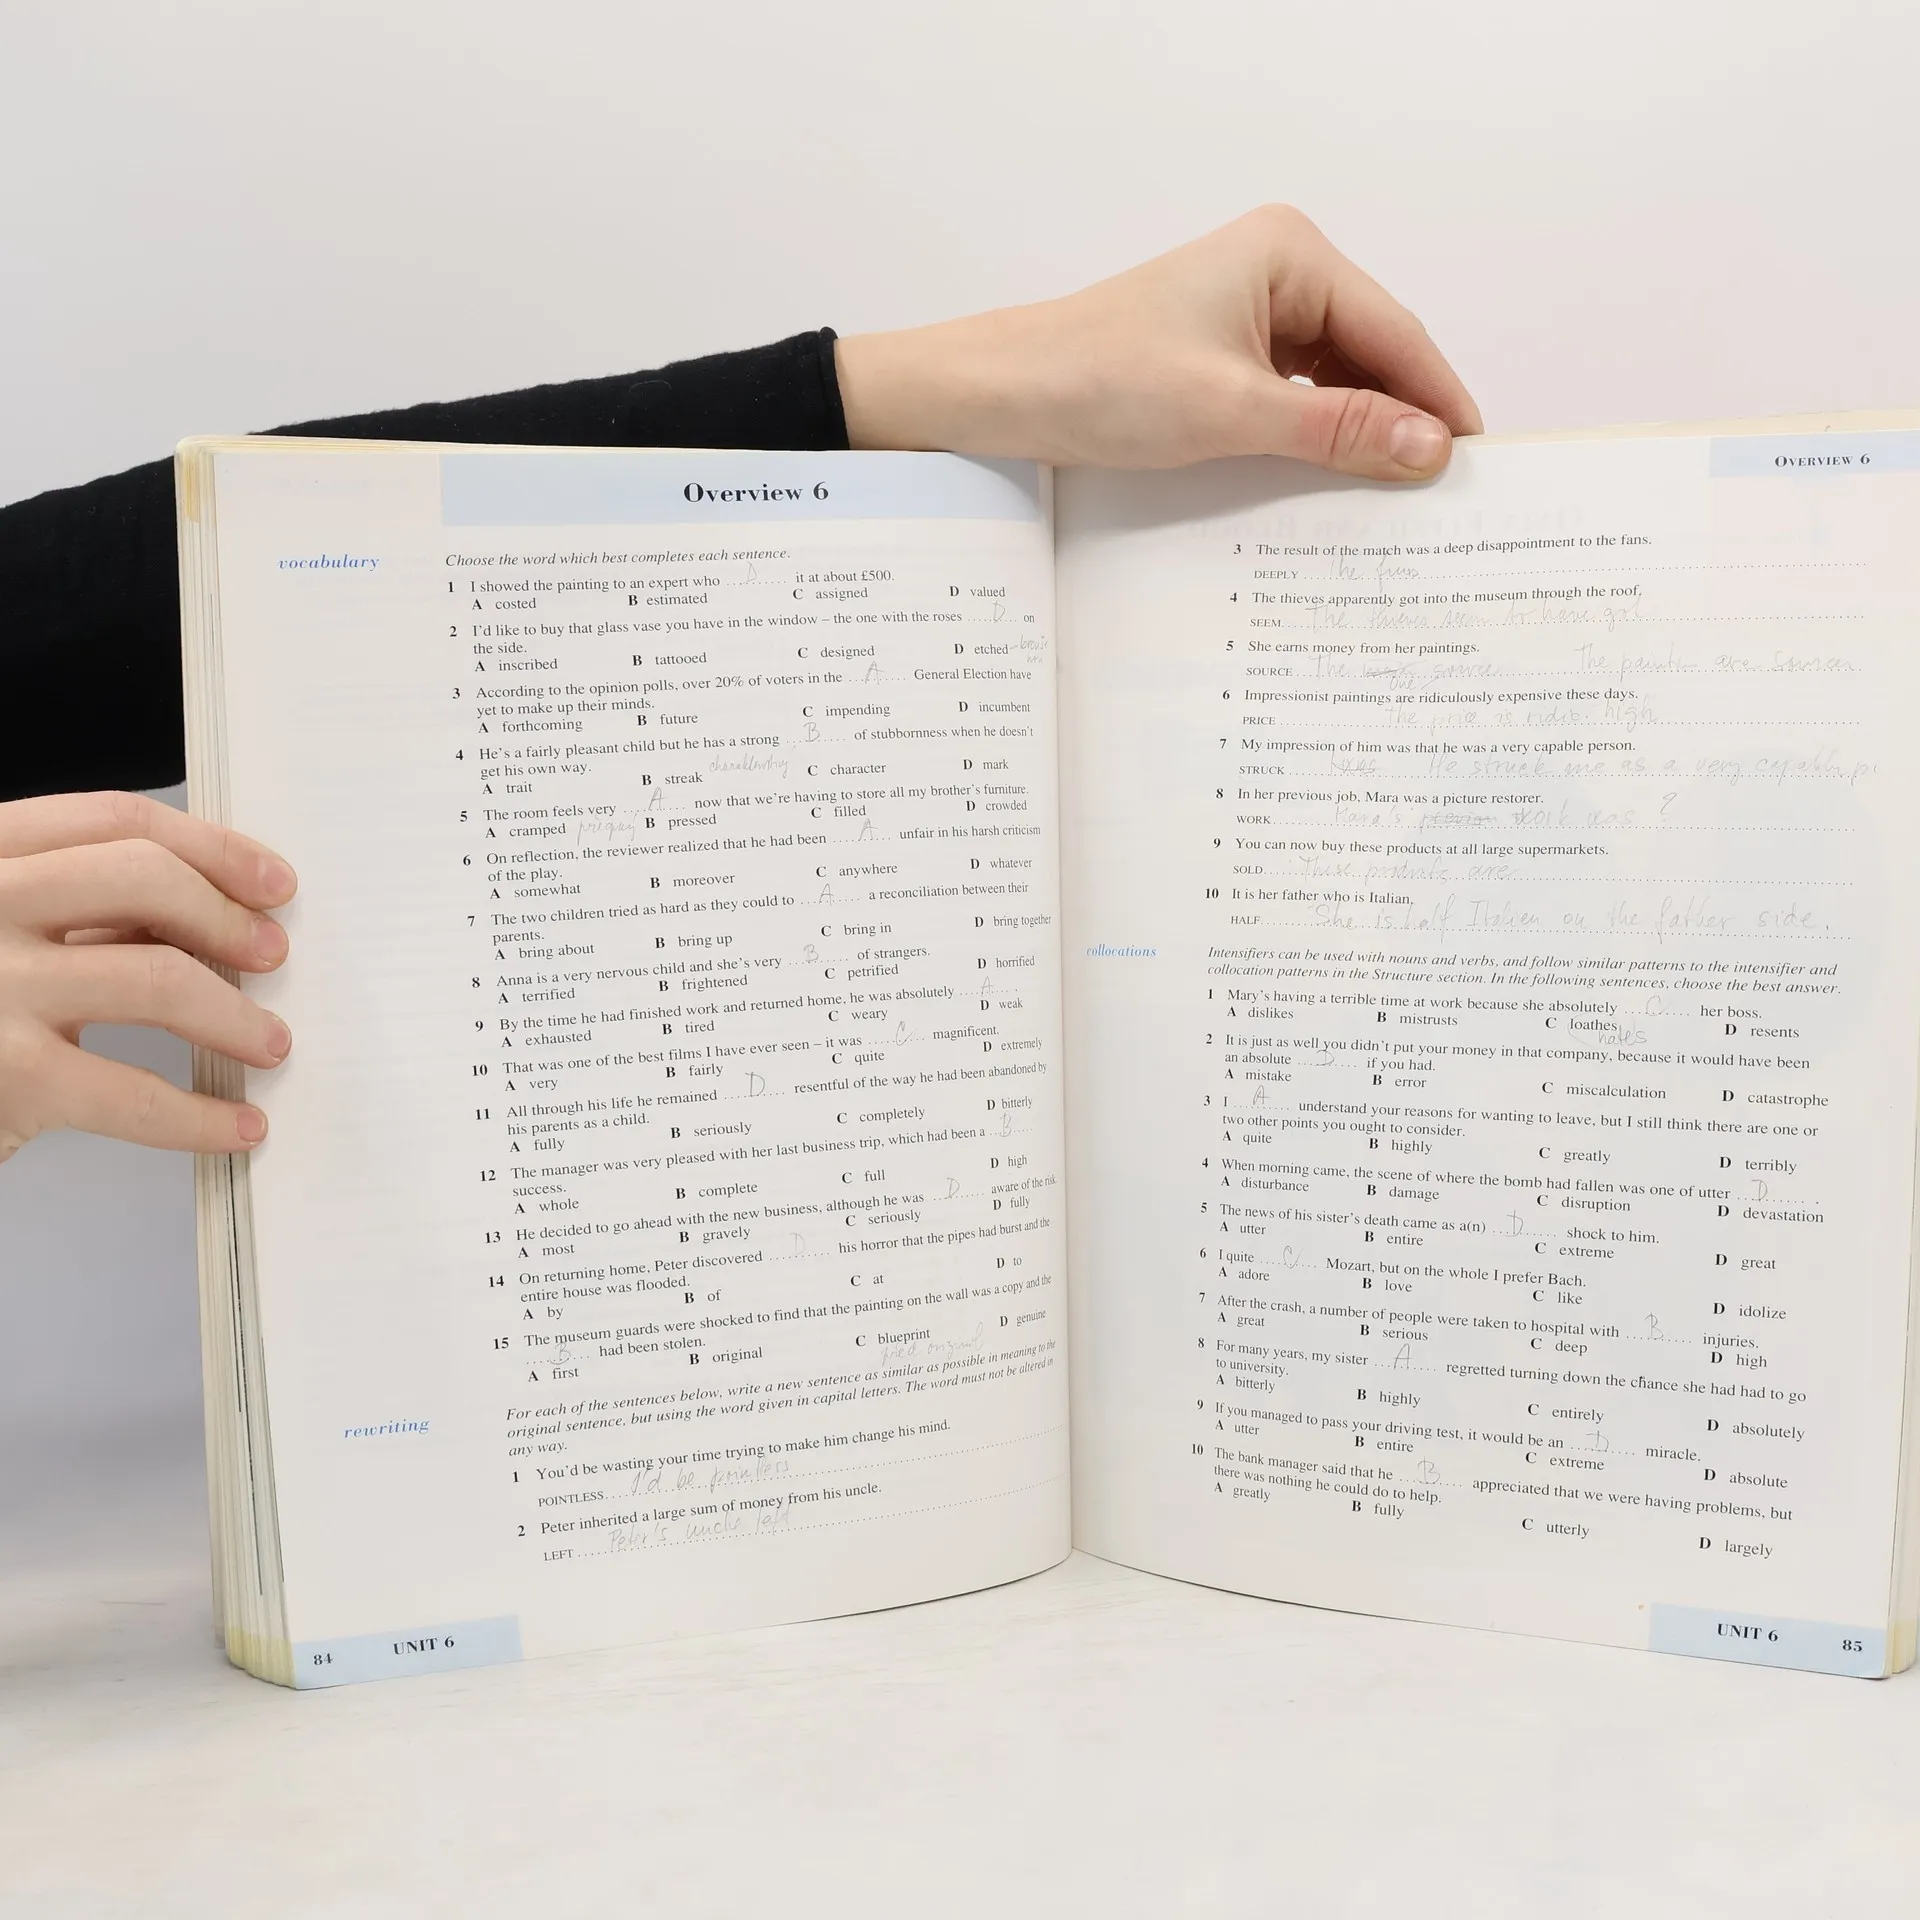 Overview 6
vocabulary
Choose the word which best completes each sentence.
1 I showed the painting to an expert who .....D..... it at about £500.
A costed B estimated C assigned D valued
2 I'd like to buy that glass vase you have in the window – the one with the roses .....D..... on
the side.
A inscribed B tattooed C designed D etched
3 According to the opinion polls, over 20% of voters in the .....A..... General Election have
yet to make up their minds.
A forthcoming B future C impending D incumbent
4 He's a fairly pleasant child but he has a strong .....B..... of stubbornness when he doesn't
get his own way.
A trait B streak C character D mark
5 The room feels very .....A..... now that we're having to store all my brother's furniture.
A cramped B pressed C filled D crowded
6 On reflection, the reviewer realized that he had been .....A..... unfair in his harsh criticism
of the play.
A somewhat B moreover C anywhere D whatever
7 The two children tried as hard as they could to .....A..... a reconciliation between their
parents.
A bring about B bring up C bring in D bring together
8 Anna is a very nervous child and she's very .....B..... of strangers.
A terrified B frightened C petrified D horrified
9 By the time he had finished work and returned home, he was absolutely .....A..... .
A exhausted B tired C weary D weak
10 That was one of the best films I have ever seen – it was .....C..... magnificent.
A very B fairly C quite D extremely
11 All through his life he remained .....D..... resentful of the way he had been abandoned by
his parents as a child.
A fully B seriously C completely D bitterly
12 The manager was very pleased with her last business trip, which had been a .....B.....
success.
A whole B complete C full D high
13 He decided to go ahead with the new business, although he was .....D..... aware of the risk.
A most B gravely C seriously D fully
14 On returning home, Peter discovered .....D..... his horror that the pipes had burst and the
entire house was flooded.
A by B of C at D to
15 The museum guards were shocked to find that the painting on the wall was a copy and the
.....B..... had been stolen.
A first B original C blueprint D genuine
rewriting
For each of the sentences below, write a new sentence as similar as possible in meaning to the
original sentence, but using the word given in capital letters. The word must not be altered in
any way.
1 You'd be wasting your time trying to make him change his mind.
POINTLESS I'd be pointless
2 Peter inherited a large sum of money from his uncle.
LEFT Peter's uncle left
84 UNIT 6
OVERVIEW 6
3 The result of the match was a deep disappointment to the fans.
DEEPLY The fans
4 The thieves apparently got into the museum through the roof.
SEEM The thieves seem to have got
5 She earns money from her paintings.
SOURCE The source The are
6 Impressionist paintings are ridiculously expensive these days.
PRICE The price is ridic. high
7 My impression of him was that he was a very capable person.
STRUCK He struck me as a very
8 In her previous job, Mara was a picture restorer.
WORK Mara's work was ?
9 You can now buy these products at all large supermarkets.
SOLD These products are
10 It is her father who is Italian.
HALF She is half Italien on the father side.
collocations
Intensifiers can be used with nouns and verbs, and follow similar patterns to the intensifier and
collocation patterns in the Structure section. In the following sentences, choose the best answer.
1 Mary's having a terrible time at work because she absolutely .....C..... her boss.
A dislikes B mistrusts C loathes D resents
hates
2 It is just as well you didn't put your money in that company, because it would have been
an absolute .....D..... if you had.
A mistake B error C miscalculation D catastrophe
3 I .....A..... understand your reasons for wanting to leave, but I still think there are one or
two other points you ought to consider.
A quite B highly C greatly D terribly
4 When morning came, the scene of where the bomb had fallen was one of utter .....D..... .
A disturbance B damage C disruption D devastation
5 The news of his sister's death came as a(n) .....D..... shock to him.
A utter B entire C extreme D great
6 I quite .....C..... Mozart, but on the whole I prefer Bach.
A adore B love C like D idolize
7 After the crash, a number of people were taken to hospital with .....B..... injuries.
A great B serious C deep D high
8 For many years, my sister .....A..... regretted turning down the chance she had had to go
to university.
A bitterly B highly C entirely D absolutely
9 If you managed to pass your driving test, it would be an .....D..... miracle.
A utter B entire C extreme D absolute
10 The bank manager said that he .....B..... appreciated that we were having problems, but
there was nothing he could do to help.
A greatly B fully C utterly D largely
UNIT 6 85